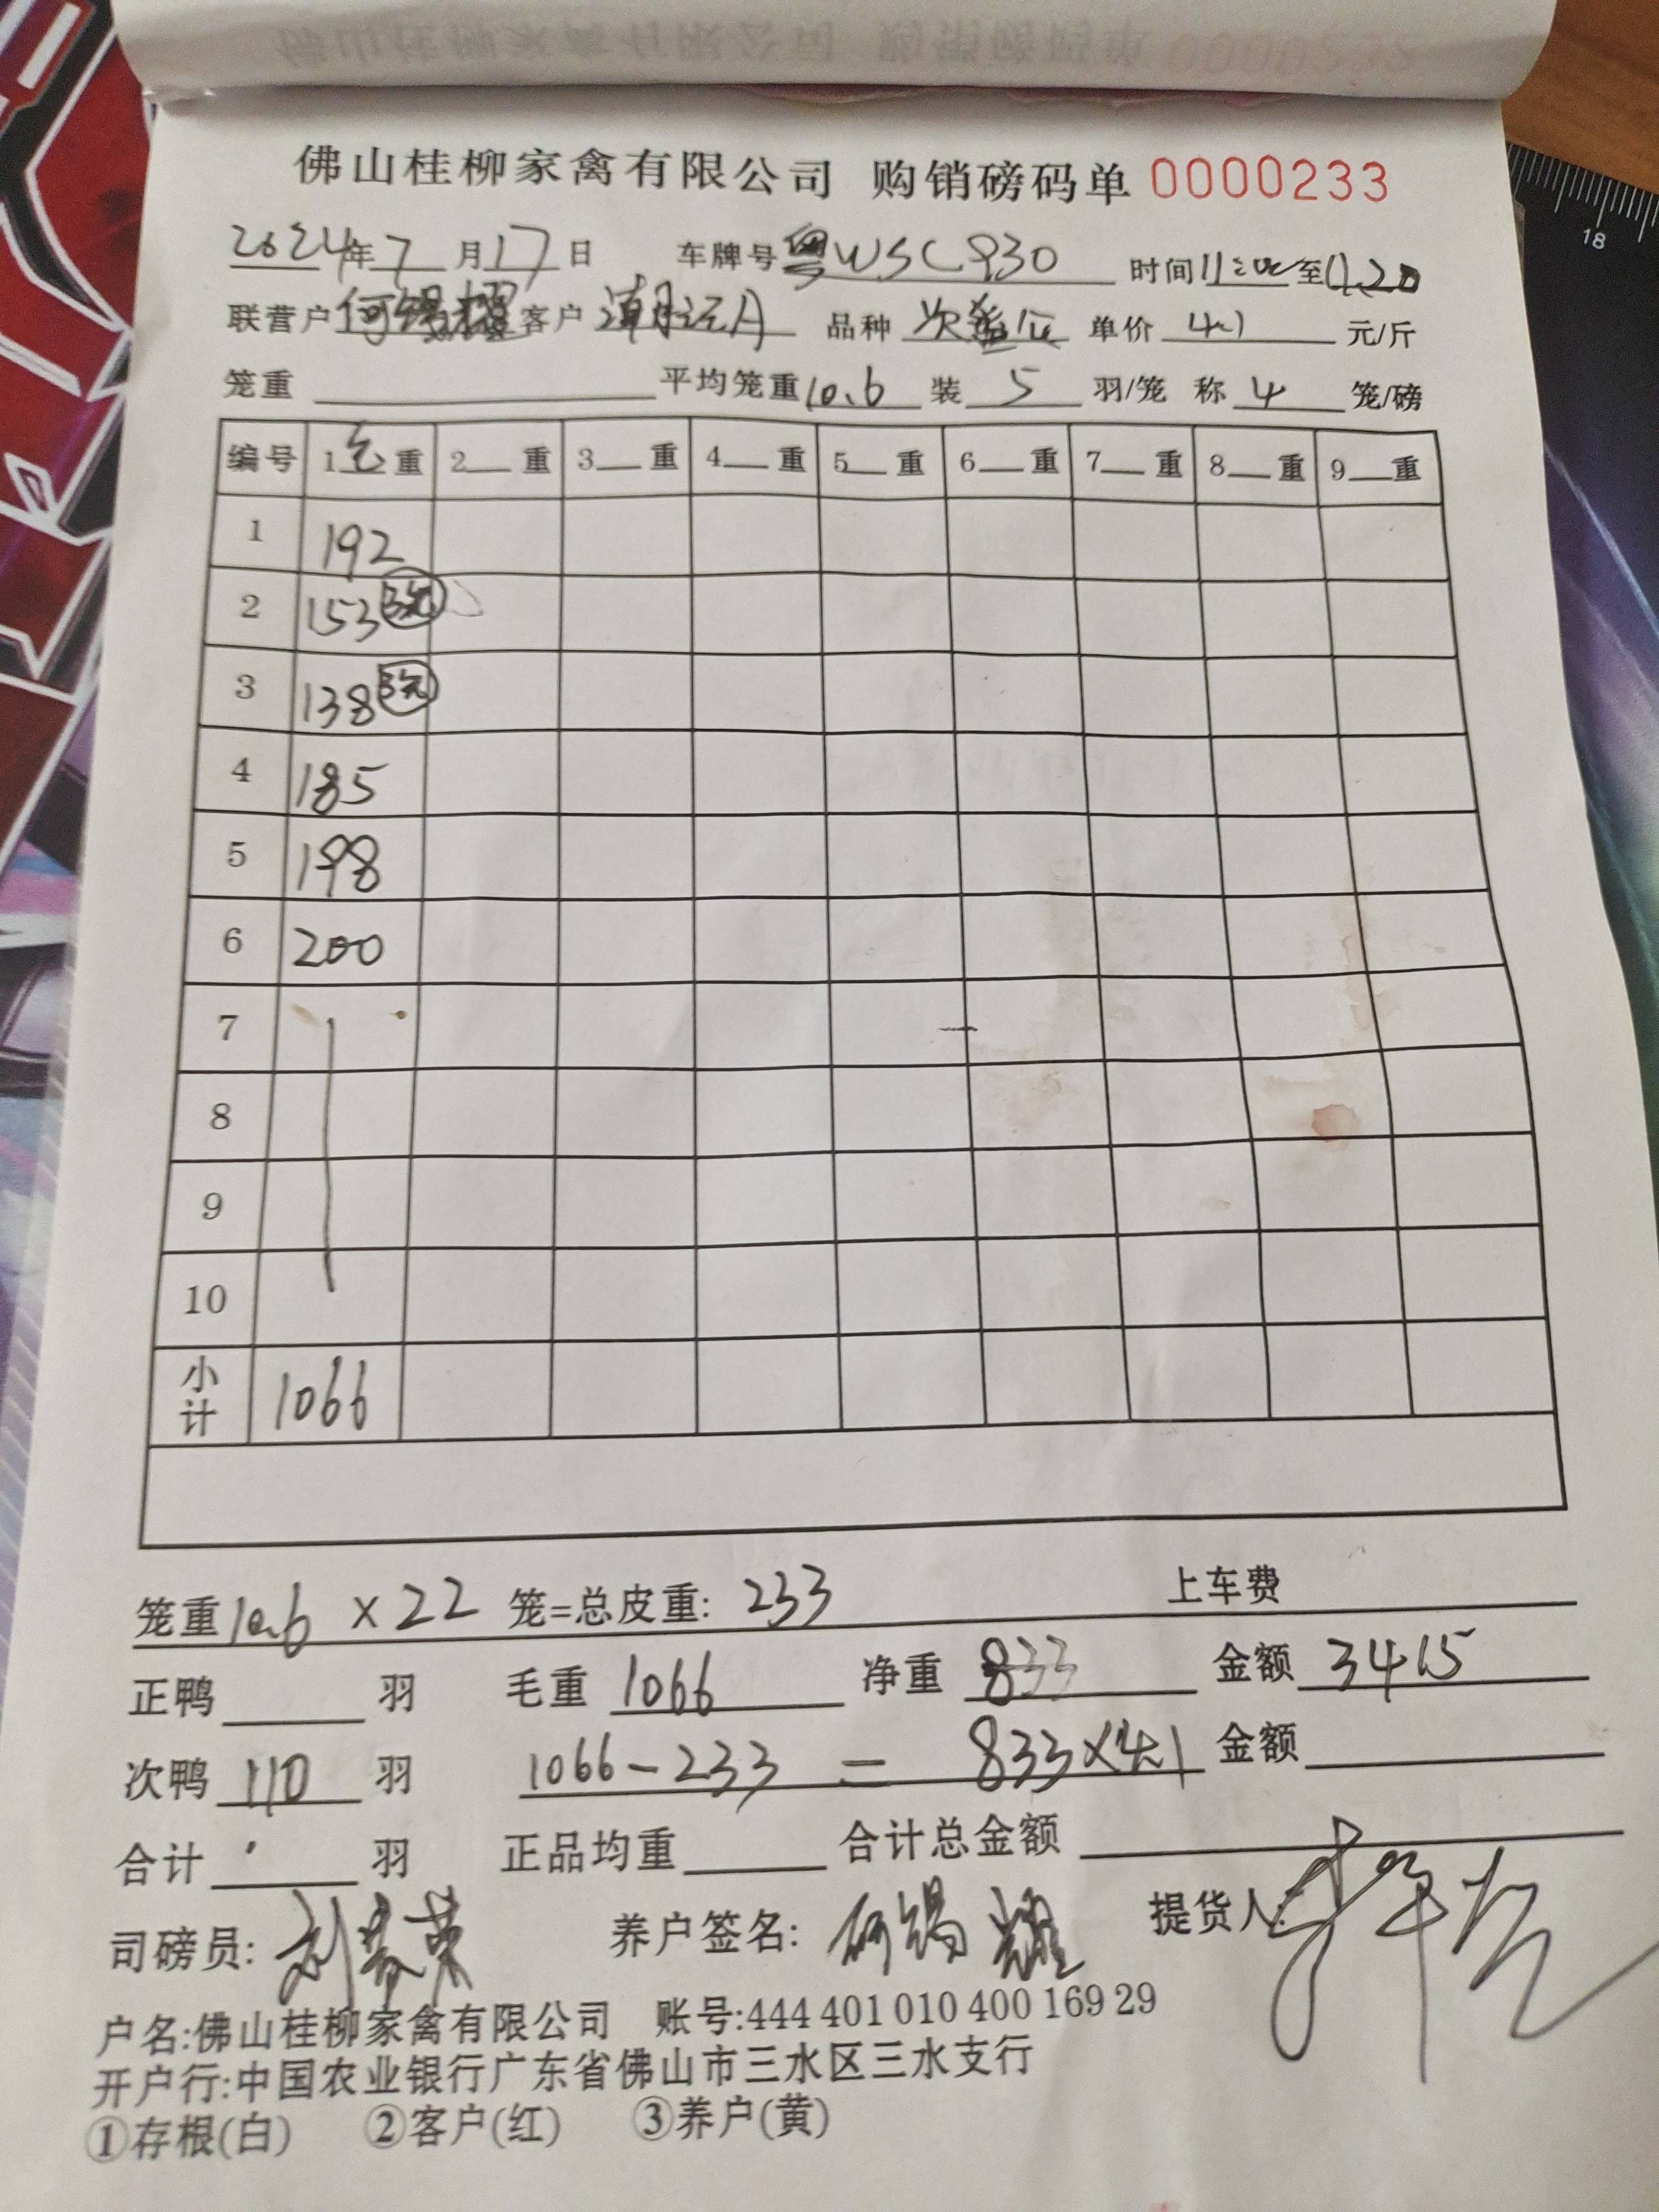 佛山桂柳家禽有限公司 购销磅码单 0000233
2024年7月17日 车牌号粤WSC930 时间11:00至11.20
联营户何锡耀客户 品种 次 单价 4.1 元/斤
笼重 平均笼重10.6 装 5 羽/笼 称 4 笼/磅
编号 1毛重 2 重 3 重 4 重 5 重 6 重 7 重 8 重 9 重
1 192
2 153 3元
3 138 3元
4 185
5 198
6 200
7
8
9
10
小计 1066
笼重10.6 ×22 笼=总皮重: 233 上车费
正鸭 羽 毛重 1066 净重 833 金额 3415
次鸭 110 羽 1066-233 = 833×4.1 金额
合计 羽 正品均重 合计总金额
司磅员: 养户签名: 何锡耀 提货人:
户名:佛山桂柳家禽有限公司 账号:444 401 010 400 169 29
开户行:中国农业银行广东省佛山市三水区三水支行
①存根(白) ②客户(红) ③养户(黄)
18